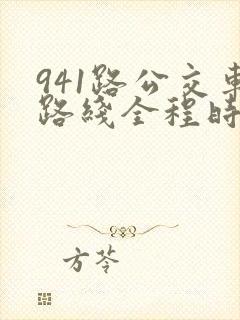 941路公交車
路綫全程時
方苓